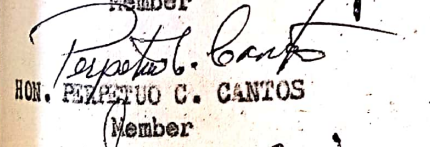 Member
Perpetuo C. Cantos
HON. PERPETUO C. CANTOS
Member